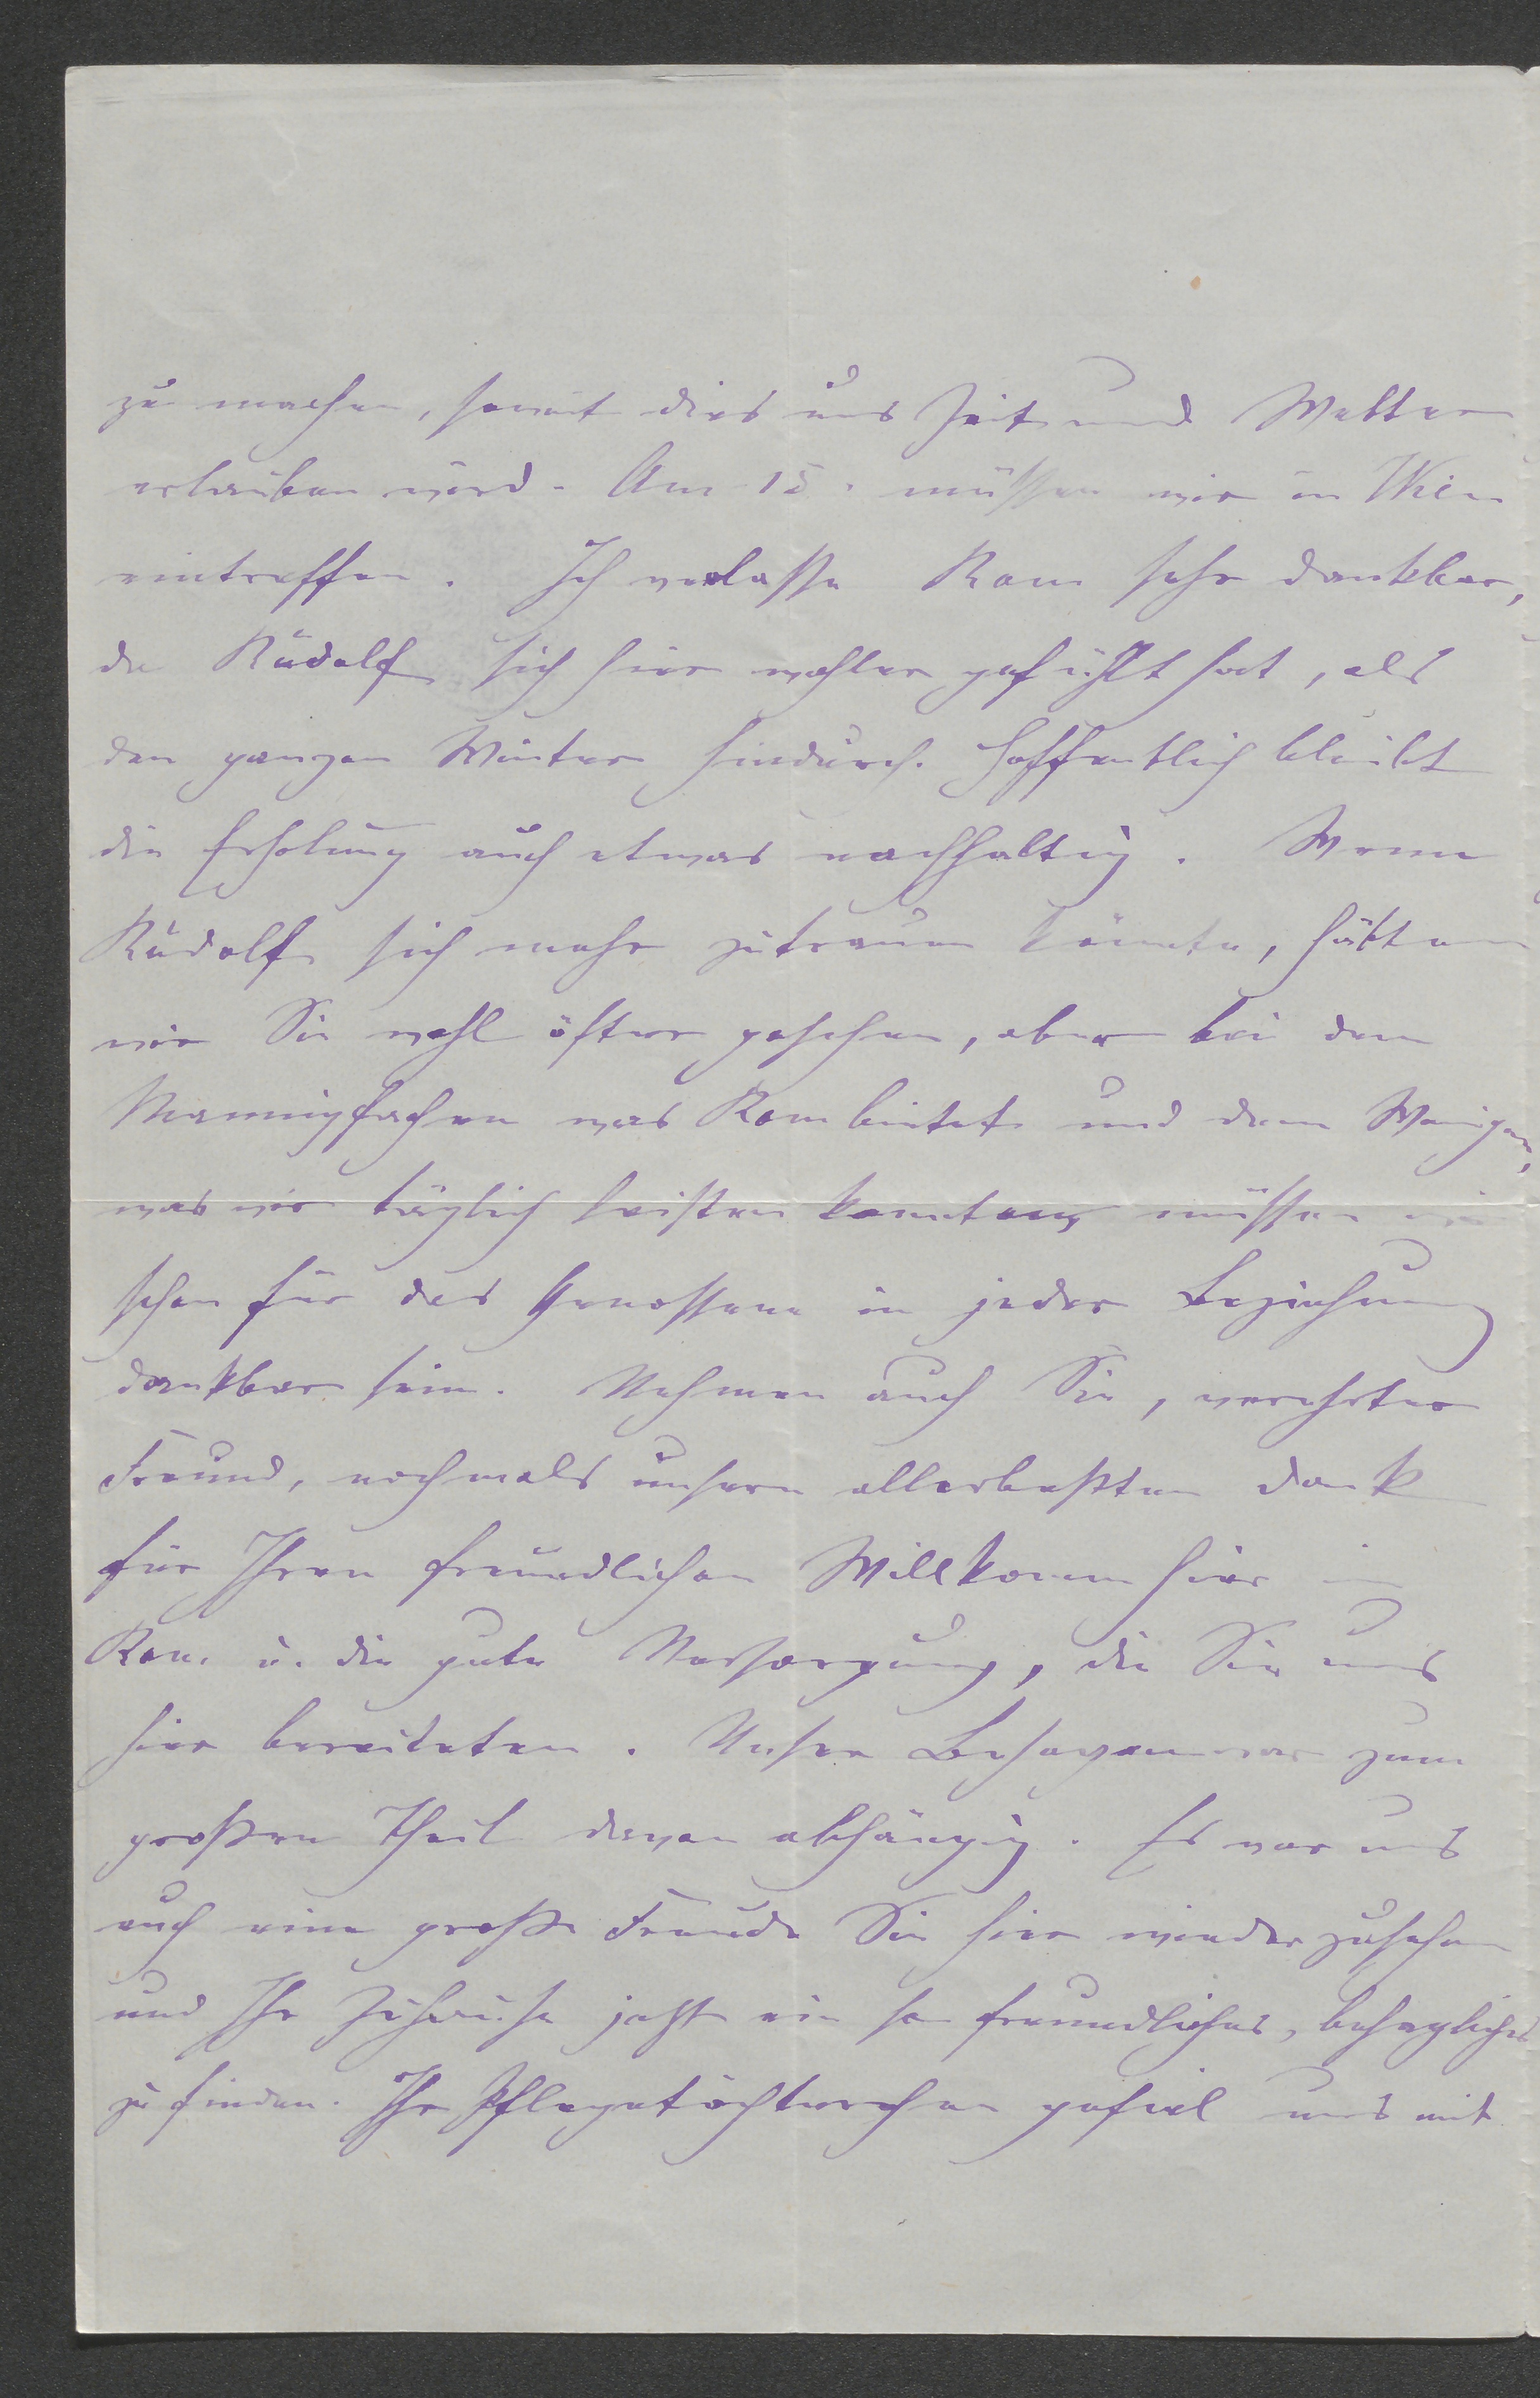 zu machen, soweit dies uns Zeit und Wetter
erlauben wird. Am 15. müssen wir in Wien
eintreffen. Ich verlasse Rom sehr dankbar,
da Rudolf sich hier wohler gefühlt hat, als
den ganzen Winter hindurch. Hoffentlich bleibt
die Erholung auch etwas nachhaltig. Wenn
Rudolf sich mehr zutrauen könnte, hätten
wir Sie wohl öfter gesehen, aber bei dem
Mannigfachen was Rom bietet und dem Wenigen,
was wir täglich leisten konnten, müssen wir
schon für das Genossene in jeder Beziehung
dankbar sein. Nehmen auch Sie, verehrter
Freund, nochmals unsern allerbesten Dank
für Ihren freundlichen Willkomm hier in
Rom u. die gute Versorgung, die Sie uns
hier bereiteten. Unser Behagen war zum
großen Theil davon abhängig. Es war uns
auch eine große Freude Sie hier wiederzusehen
und Ihr Zuhause jetzt ein so freundliches, behagliches
zu finden. Ihr Pflegetöchterchen gefiel uns mit